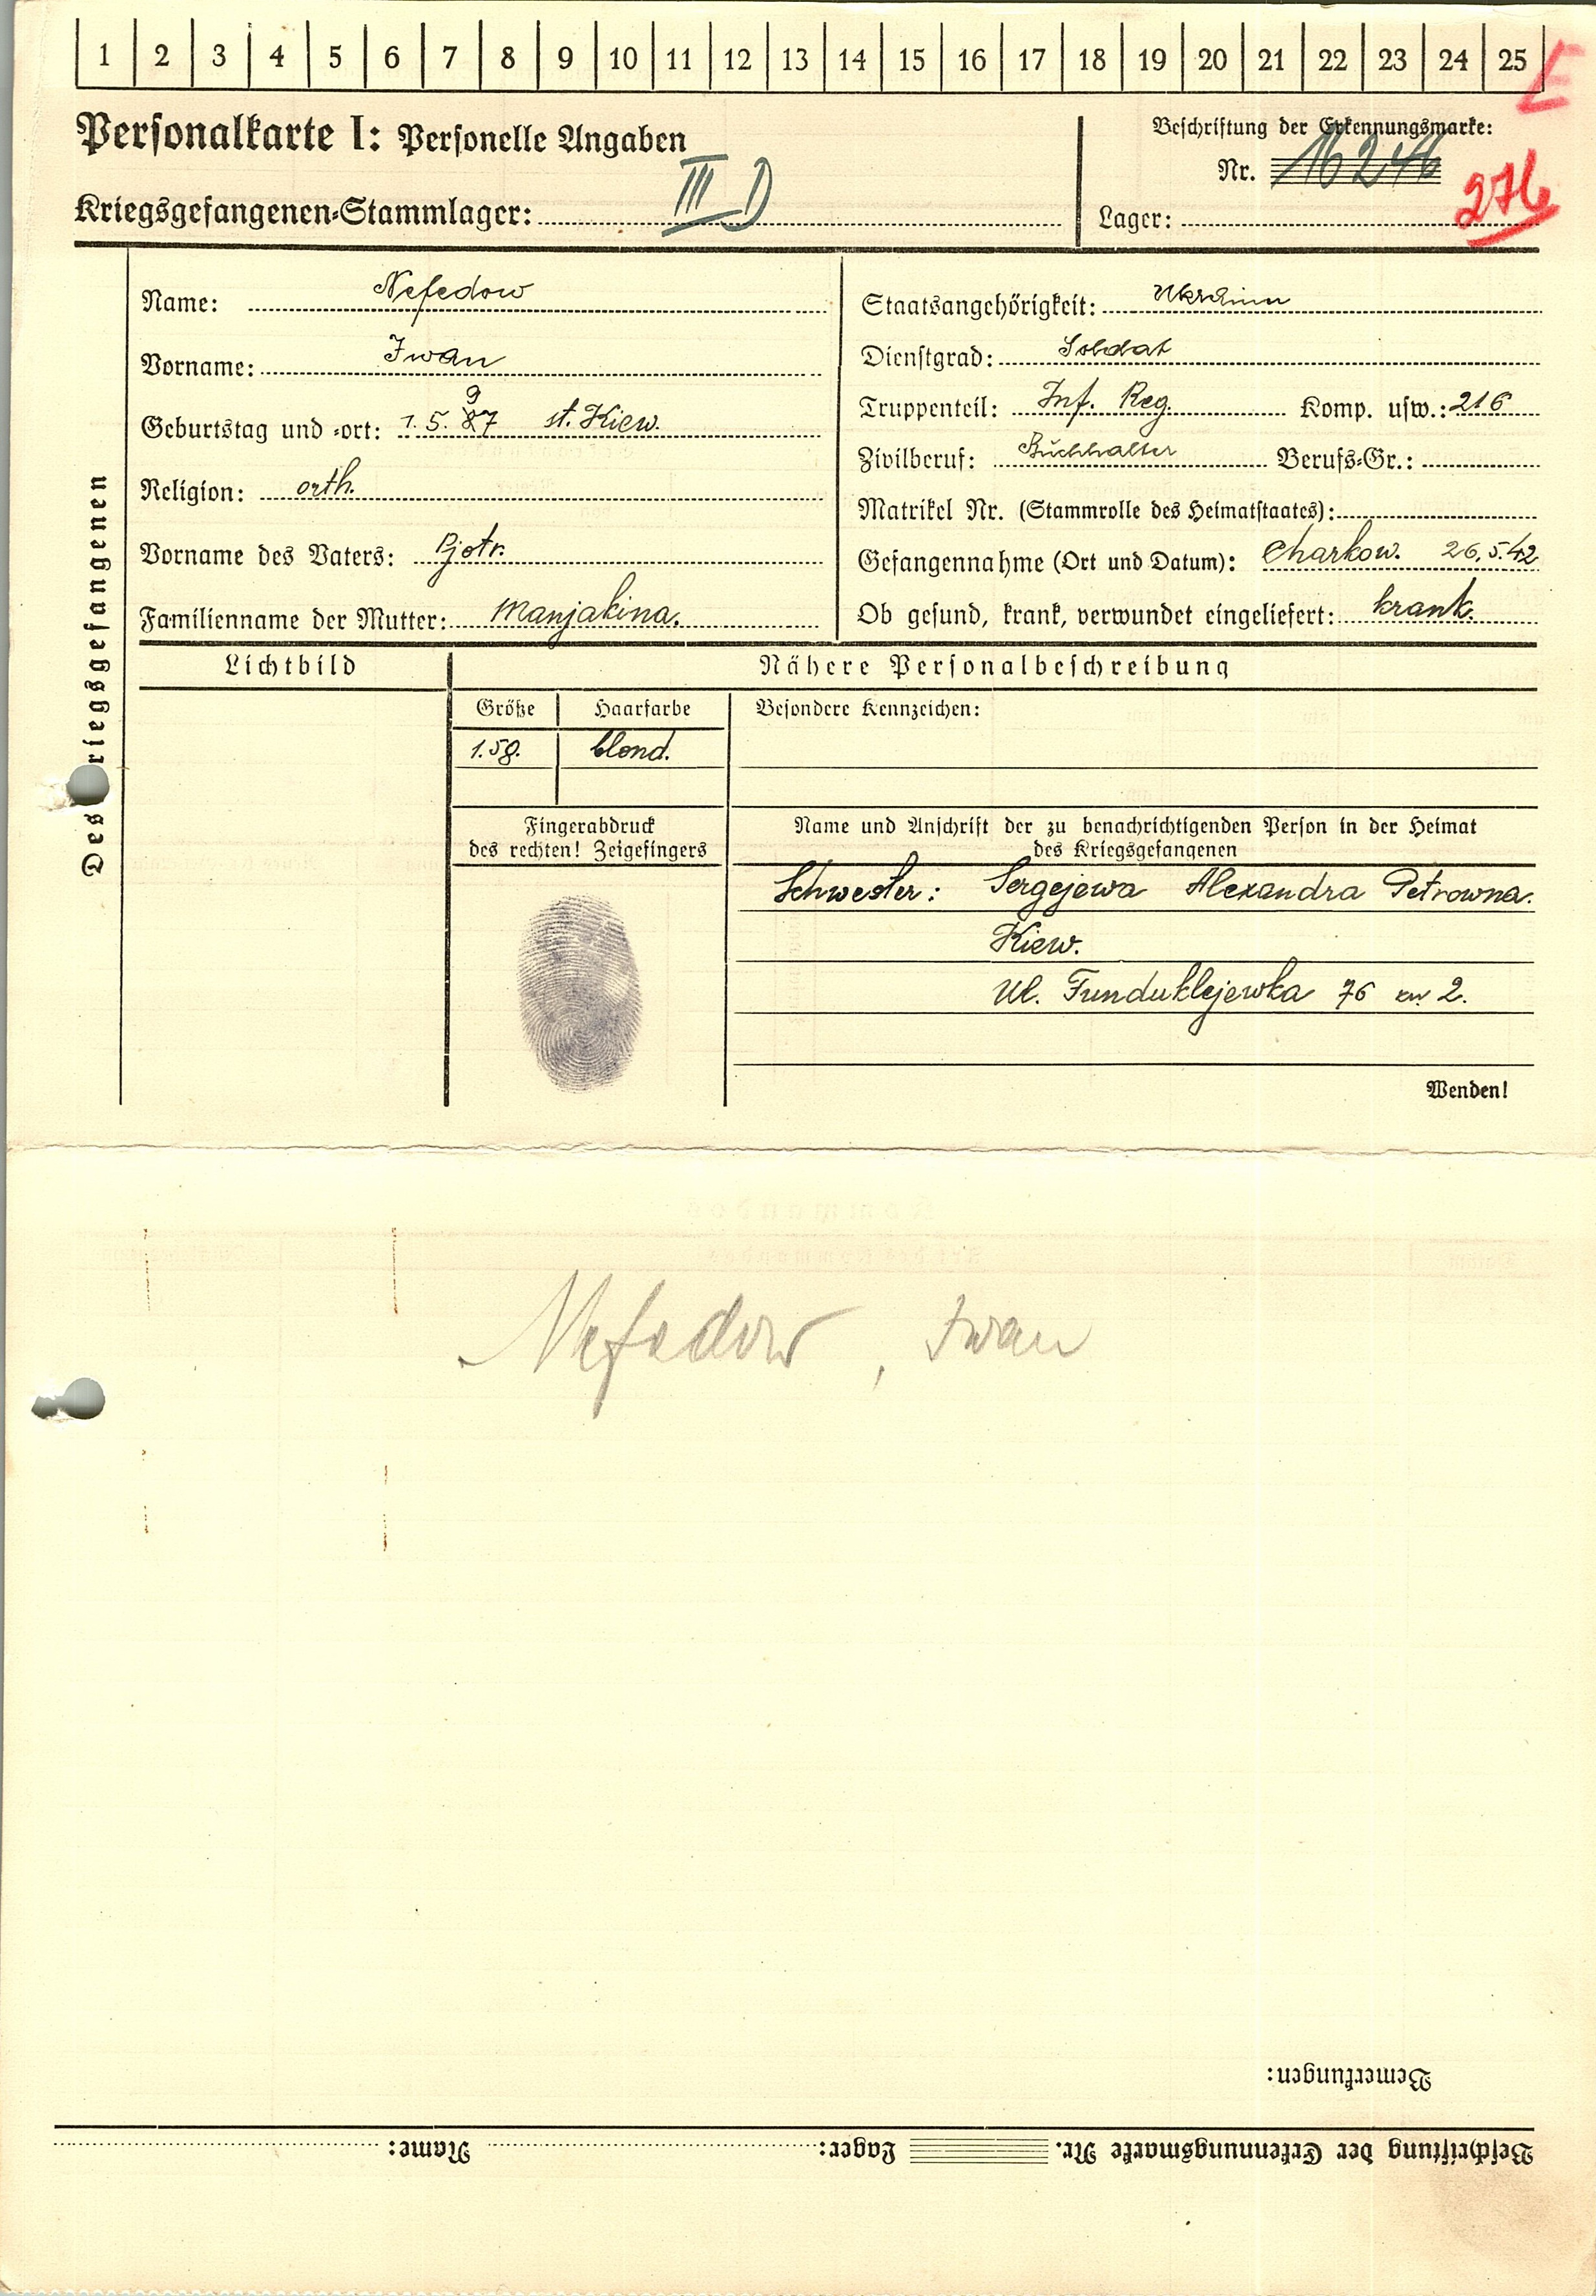 1 2 3 4 5 6 7 8 9 10 11 12 13 14 15 16 17 18 19 20 21 22 23 24 25
E
Personalkarte I: Personelle Angaben
Beschriftung der Erkennungsmarke:
Nr. 16246
Kriegsgefangenen-Stammlager: III D
Lager: 276
Des Kriegsgefangenen
Name: Nefedow
Vorname: Iwan
9
Geburtstag und -ort: 1.5.87 st. Kiew.
Religion: orth.
Vorname des Vaters: Pjotr.
Familienname der Mutter: Manjakina.
Staatsangehörigkeit:
Dienstgrad: Soldat
Truppenteil: Inf. Reg. Komp. usw.: 216
Zivilberuf: Buchhalter Berufs-Gr.:
Matrikel Nr. (Stammrolle des Heimatstaates):
Gefangennahme (Ort und Datum): Charkow. 26.5.42
Ob gesund, krank, verwundet eingeliefert: krank.
Lichtbild
Nähere Personalbeschreibung
Größe Haarfarbe Besondere Kennzeichen:
1.58. blond.
Fingerabdruck
des rechten! Zeigefingers
Name und Anschrift der zu benachrichtigenden Person in der Heimat
des Kriegsgefangenen
Schwester: Sergejewa Alexandra Petrowna.
Kiew.
Ul. Funduklejewka 76 kw. 2.
Wenden!
Nefedow, Iwan
Bemerkungen:
Beschriftung der Erkennungsmarke Nr. Lager: Name: